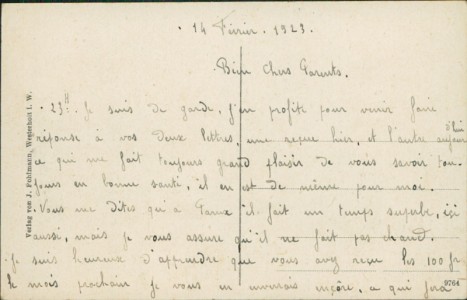 . 14 Février . 1923 .
Bien Chers Parents.
. 23H. Je suis de garde, j'en profite pour venir faire
réponse à vos deux lettres, une reçue hier, et l'autre
ce qui me fait toujours grand plaisir de vous savoir tou-
jours en bonne santé, il en est de même pour moi.
Vous me dites qu'à Paris il fait un temps superbe, içi
aussi, mais je vous assure qu'il ne fait pas chaud.
Je suis heureux d'apprendre que vous avez reçu les 100 fr
le mois prochain je vous en enverrais encore, ce qui fera
Verlag von J. Pohlmann, Westerholt i. W.
9764